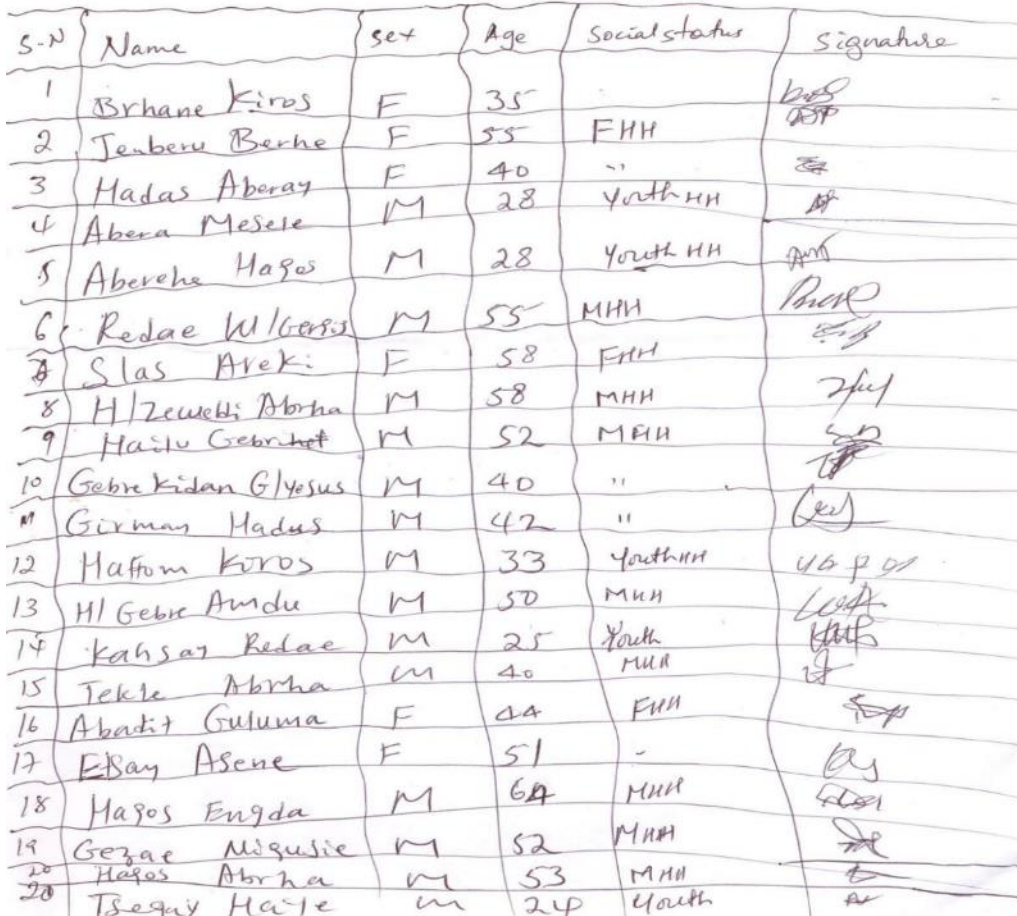 S-N Name Sex Age Social status Signature
1 Brhane Kiros F 35
2 Tenberu Berhe F 55 FHH
3 Hadas Aberay F 40 "
4 Abera Mesele M 28 Youth HH
5 Aberehe Hagos M 28 Youth HH
6 Redae W/Gergis M 55 MHH
7 Slas Areki F 58 FHH
8 H/Zewebdi Abrha M 58 MHH
9 Hailu Gebrihet M 52 MHH
10 Gebre Kidan G/yesus M 40 "
11 Girmay Hadus M 42 "
12 Haftom Kiros M 33 Youth HH
13 H/Gebre Amdu M 50 MHH
14 Kahsay Redae M 25 Youth
15 Tekle Abrha M 40 MHH
16 Abadit Guluma F 44 FHH
17 Elsay Asene F 51 -
18 Hagos Engda M 64 MHH
19 Gezae Nigusie M 52 MHH
20 Hagos Abrha M 53 MHH
20 Tsegay Haile M 24 Youth